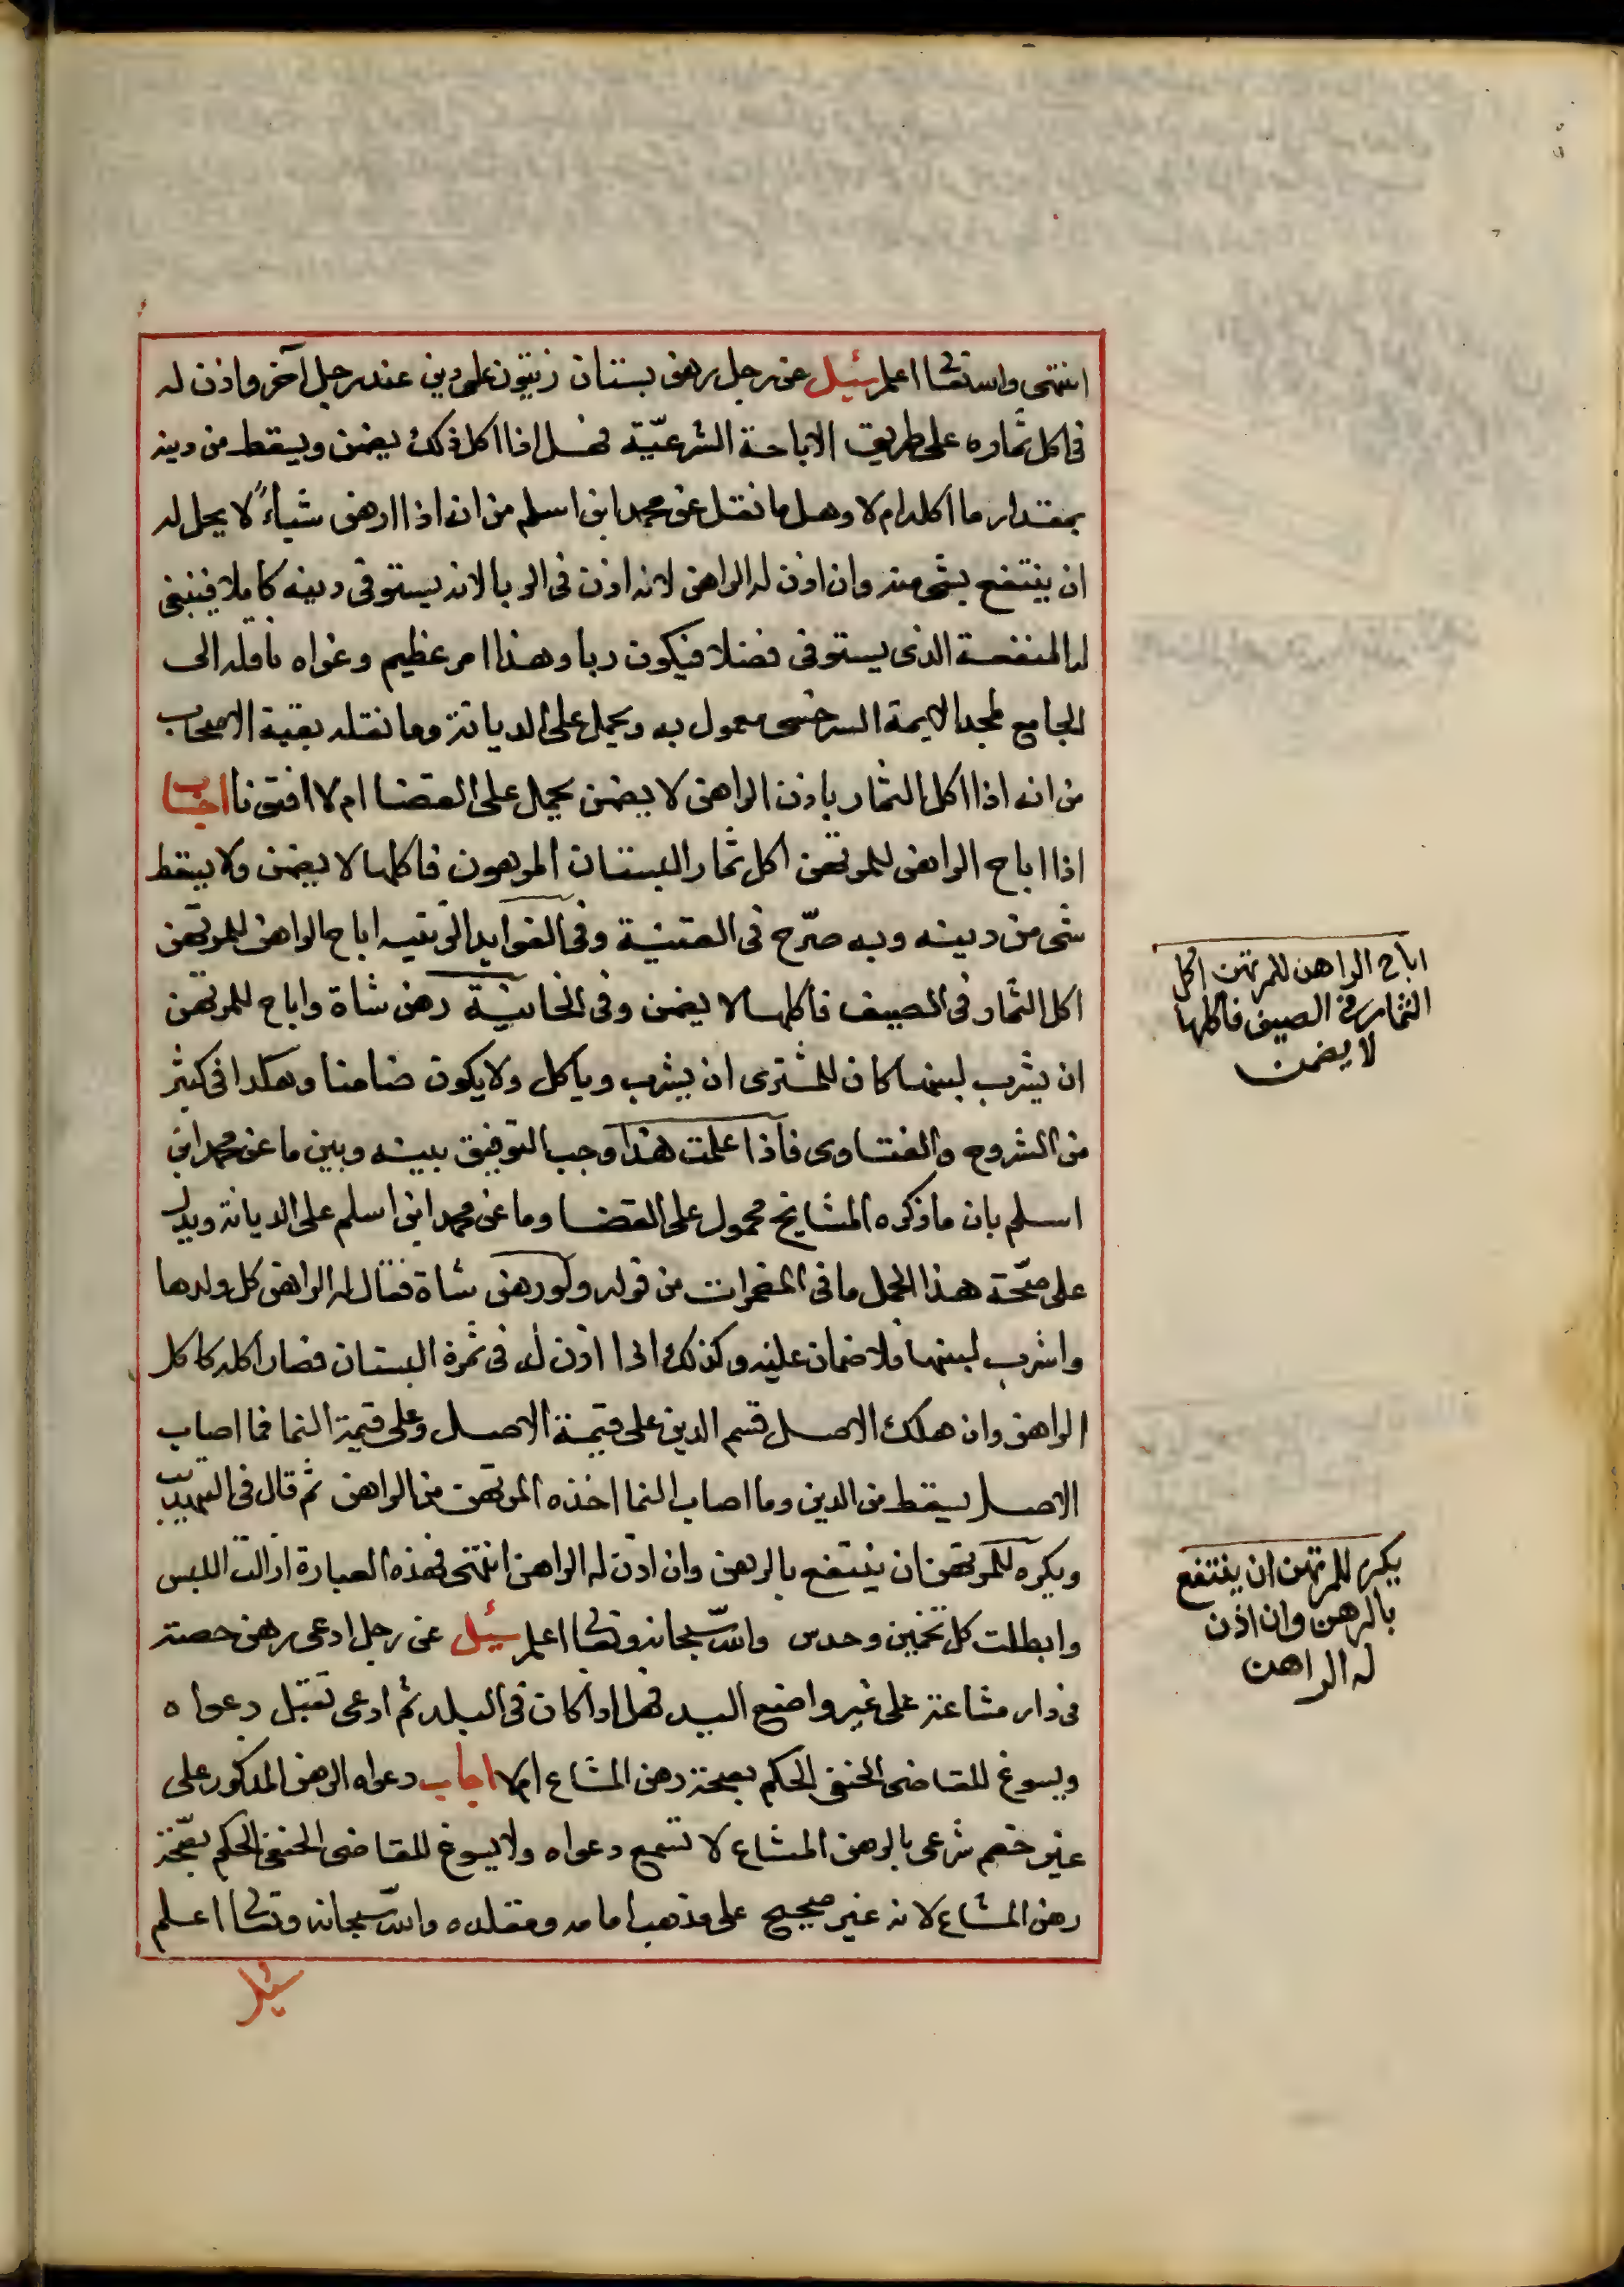 انتهى والله تعالى اعلم سئيل عن رجل رهن بستان زيتون على دين عند رجل آخر واذن له
في اكل ثماره على طريق الاباحة الشرعيّة فهل اذا اكل ذلك يضمن ويسقط من دينه
بمقدار ما اكله ام لا وهل ما نقل عن محمد ابن اسلم من انه اذا ارهن شياءً لا يحل له
ان ينتفع بشى منه وان اذن له الراهن لانه اذن في الربا لانه يستوفى دينه كاملا فينبغى
له المنفعة الذى يستوفى فضلا فيكون ربا وهذا امر عظيم وعزاه ناقله الى
الجامع لمجد الايمة السرخسى معمول به ويحمل على الديانة وما نقله بقية الاصحاب
من انه اذا اكل الثمار باذن الراهن لا يضمن يحمل على القضا ام لا افتونا اجاب
اذا اباح الراهن للمرتهن اكل ثمار البستان المرهون فاكلها لا يضمن ولا يسقط
شى من دينه وبه صرّح في القنية وفى الفوايد الزينيه اباح الراهن للمرتهن
اكل الثمار في الصيف فاكلها لا يضمن وفى الخانية رهن شاة واباح للمرتهن
ان يشرب لبنها كان للمشترى ان يشرب وياكل ولا يكون ضامنا وهكذا في كثير
من الشروح والفتاوى فاذا علمت هذا وجب التوفيق بينه وبين ما عن محمد ابن
اسلم بان ما ذكره المشايخ محمول على القضا وما عن محمد ابن اسلم على الديانة ويدل
على صحّة هذا الحمل ما فى المضمرات من قوله ولو رهن شاة فقال له الراهن كل ولدها
واشرب لبنها فلا ضمان عليه وكذلك اذا اذن له في ثمرة البستان فصار اكله كاكل
الراهن وان هلك الاصل قسم الدين على قيمة الاصل وعلى قيمة النما فما اصاب
الاصل يسقط من الدين وما اصاب النما اخذه المرتهن من الراهن ثم قال في التهذيب
ويكره للمرتهن ان ينتفع بالرهن وان اذن له الراهن انتهى فهذه العبارة ازالت اللبس
وابطلت كل تخمين وحدس والله سبحانه وتعالى اعلم سئيل عن رجل ادعى رهن حصته
في دار مشاعة على غير واضع اليد فهل اذا كان في البلد ثم ادعى تقبل دعواه
ويسوغ للقاضى الحنفى الحكم بصحة رهن المشاع ام لا اجاب دعواه الرهن المذكور على
غير خصم شرعى بالرهن المشاع لا تسمع دعواه ولا يسوغ للقاضى الحنفى الحكم بصّحة
رهن المشاع لانه غير صحيح على مذهب امامه ومقلده والله سبحانه وتعالى اعلم
سئيل
اباح الراهن للمرتهن اكل
الثمار فى الصيف فاكلها
لا يضمن
يكره للمرتهن ان ينتفع
بالرهن وان اذن
له الراهن